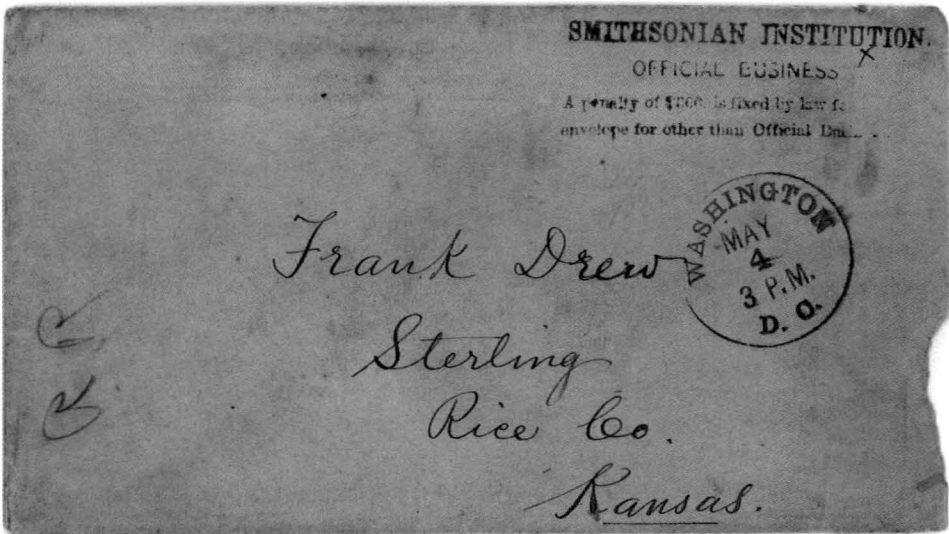 SMITHSONIAN INSTITUTION.
OFFICIAL BUSINESS
A penalty of is fixed by law
envelope for other than Official
WASHINGTON
MAY
4
3 P.M.
D. C.
Frank Drew
Sterling
Rice Co.
Kansas.